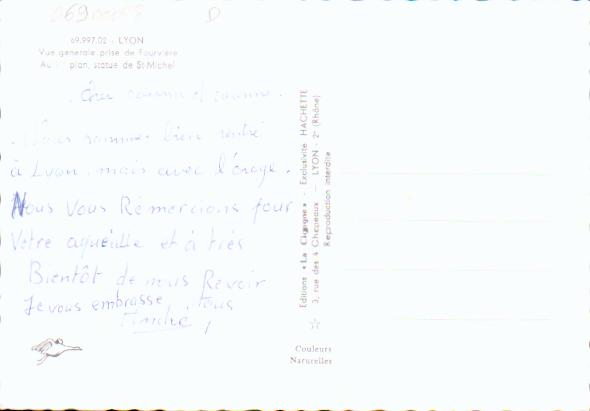 D
69.997.02 - LYON
Vue générale prise de Fourvière
Au plan, statue de St-Michel
Cher cousin et cousine.
Nous sommes bien rentré
à Lyon mais avec l'orage.
Nous Vous Rémercions pour
Votre aqueille et à très
Bientôt de nous Revoir
Je vous embrasse, tous
Editions «La Cigogne» - Exclusivité HACHETTE
3, rue des 4 Chapeaux - LYON - 2e (Rhône)
Reproduction interdite
Couleurs
Naturelles